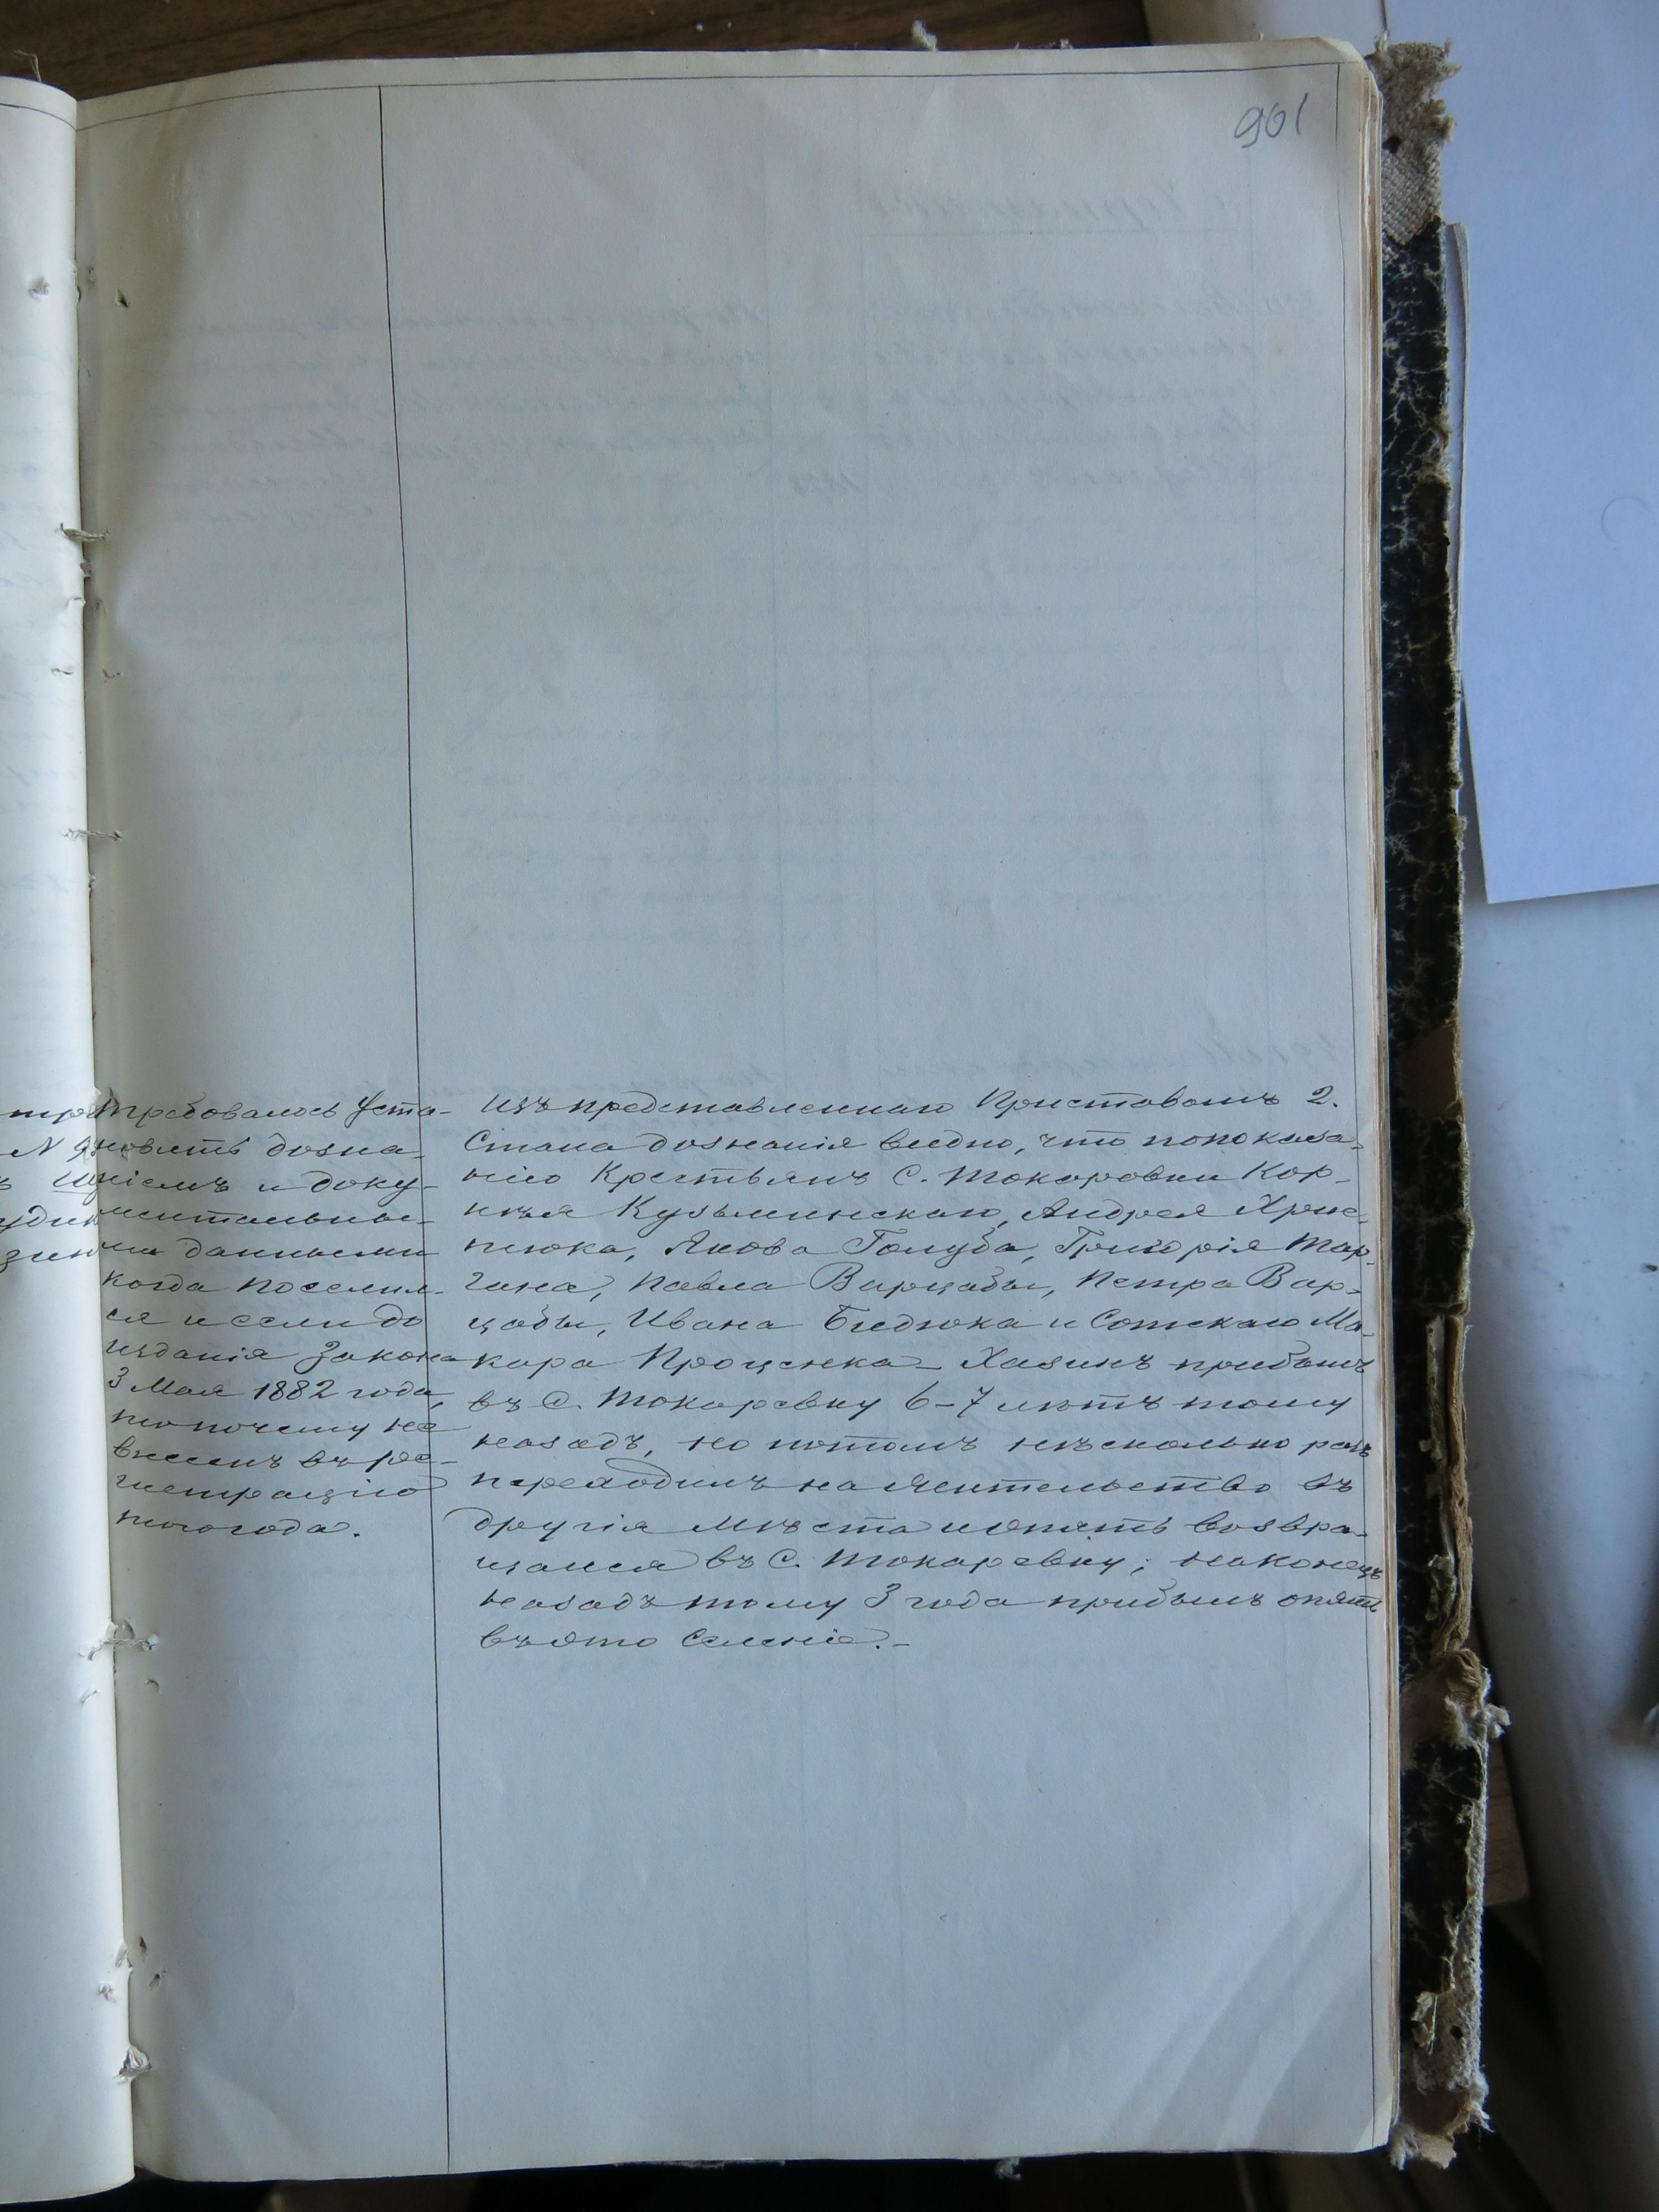 901
Требовалось Уста-
новить дозна-
ніемъ и доку-
ментальны-
ми данными
когда поселил-
ся и если до
изданія Закона
3 Мая 1882 года,
то почему не
внесенъ въ ре-
гистрацію
того года.
Изъ представленнаго Приставомъ 2.
Стана дознанія видно, что по показа-
нію Крестьянъ С. Токаровки Кор-
нѣя Кузьминскаго, Андрея Хрис-
тюка, Якова Голуба, Григорія Тар-
гана, Павла Варцабы, Петра Вар-
цабы, Ивана Бидюка и Сотскаго Ма-
кара Проценка – Хазинъ прибылъ
въ С. Токаревку 6–7 лѣтъ тому
назадъ, но потомъ нѣсколько разъ
переходилъ на жительство въ
другія мѣста и опять возвра-
щался въ С. Токаревку; наконецъ
назадъ тому 3 года прибылъ опять
въ это Селеніе.–